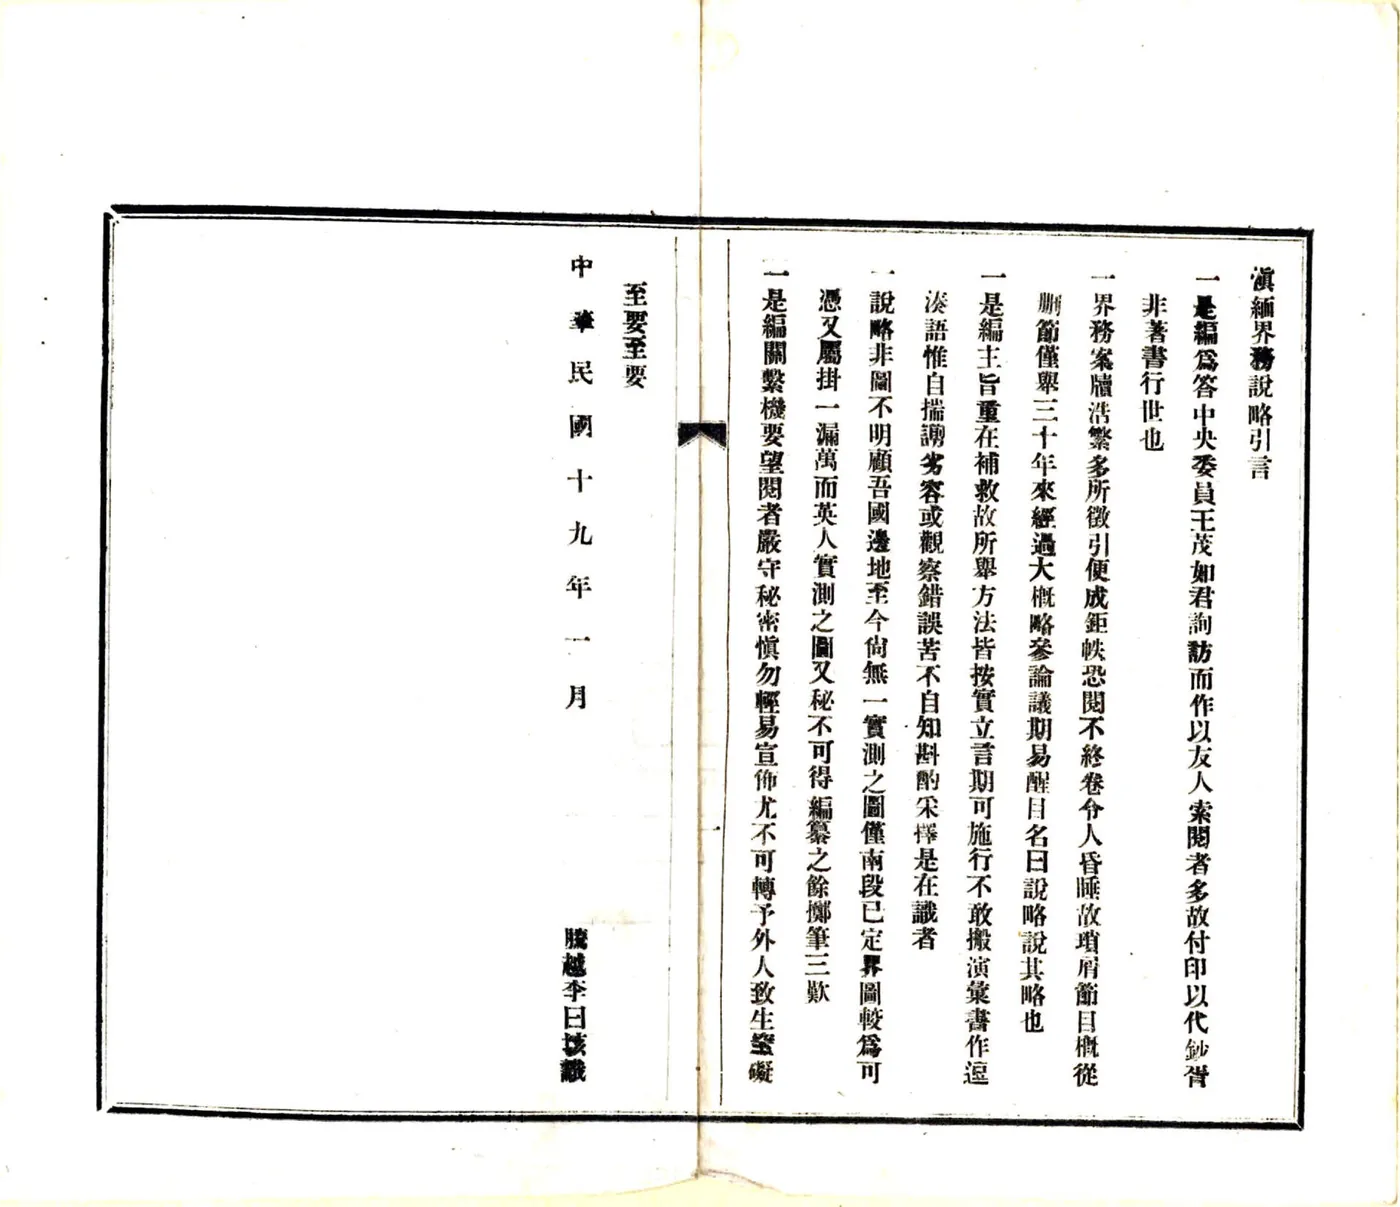 滇緬界務說略引言
一是編爲答中央委員王茂如君詢訪而作以友人索閱者多故付印以代鈔胥
非著書行世也
一界務案牘浩繁多所徵引便成鉅帙恐閱不終卷令人昏睡故瑣屑節目槪從
刪節僅舉三十年來經過大槪略參論議期易醒目名曰說略說其略也
一是編主旨重在補救故所舉方法皆按實立言期可施行不敢搬演彙書作逗
湊語惟自揣謭劣容或觀察錯誤苦不自知斟酌采擇是在識者
一說略非圖不明顧吾國邊地至今尙無一實測之圖僅南段已定界圖較爲可
憑又屬掛一漏萬而英人實測之圖又秘不可得編纂之餘擲筆三歎
一是編關繫機要望閱者嚴守秘密愼勿輕易宣佈尤不可轉予外人致生窒礙
一
至要至要
中華民國十九年一月
騰越李曰垓識